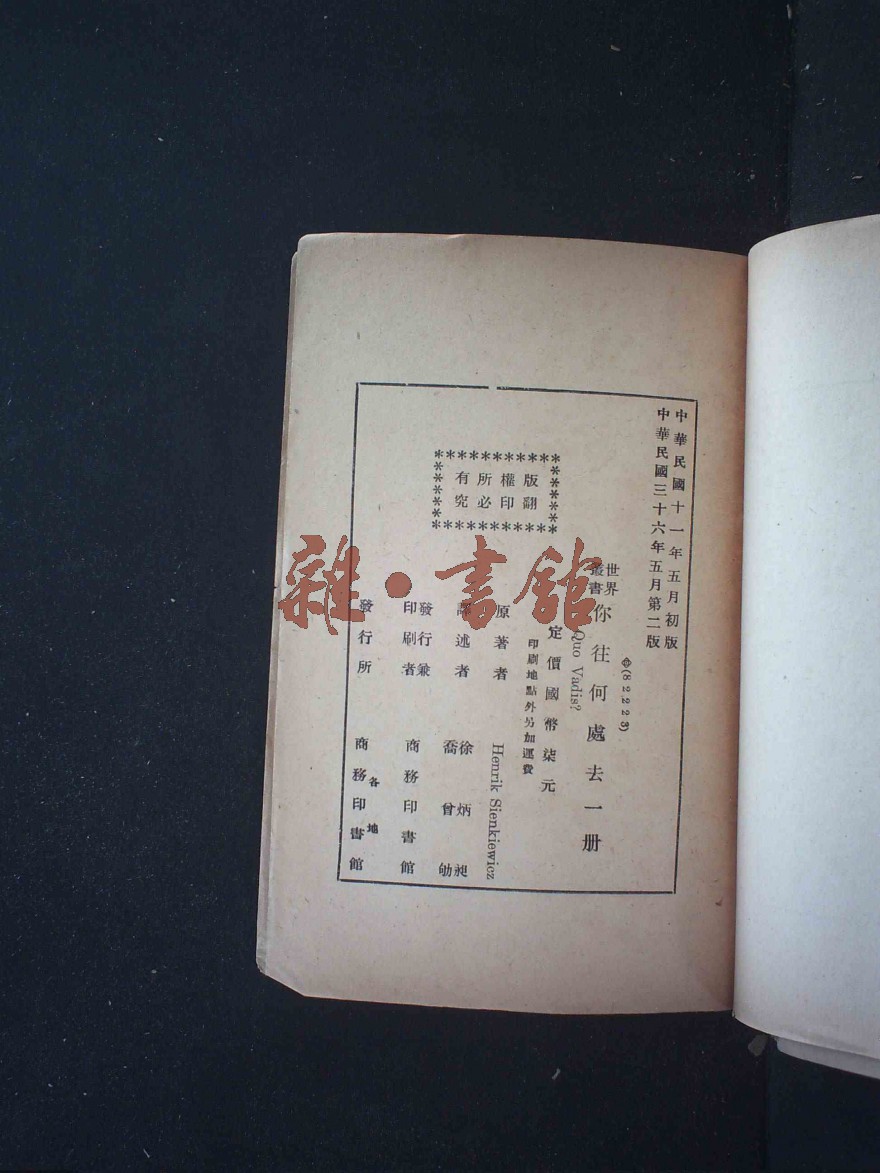 中華民國十一年五月初版
中華民國三十六年五月第二版
(82223)
世界
叢書
你往何處去一册
Quo Vadis?
定價國幣柒元
印刷地點外另加運費
版權所有
翻印必究
原著者
Henrik Sienkiewicz
譯述者
徐炳昶
喬曾劬
發行兼
印刷者
商務印書館
發行所
各地
商務印書館
雜·書館